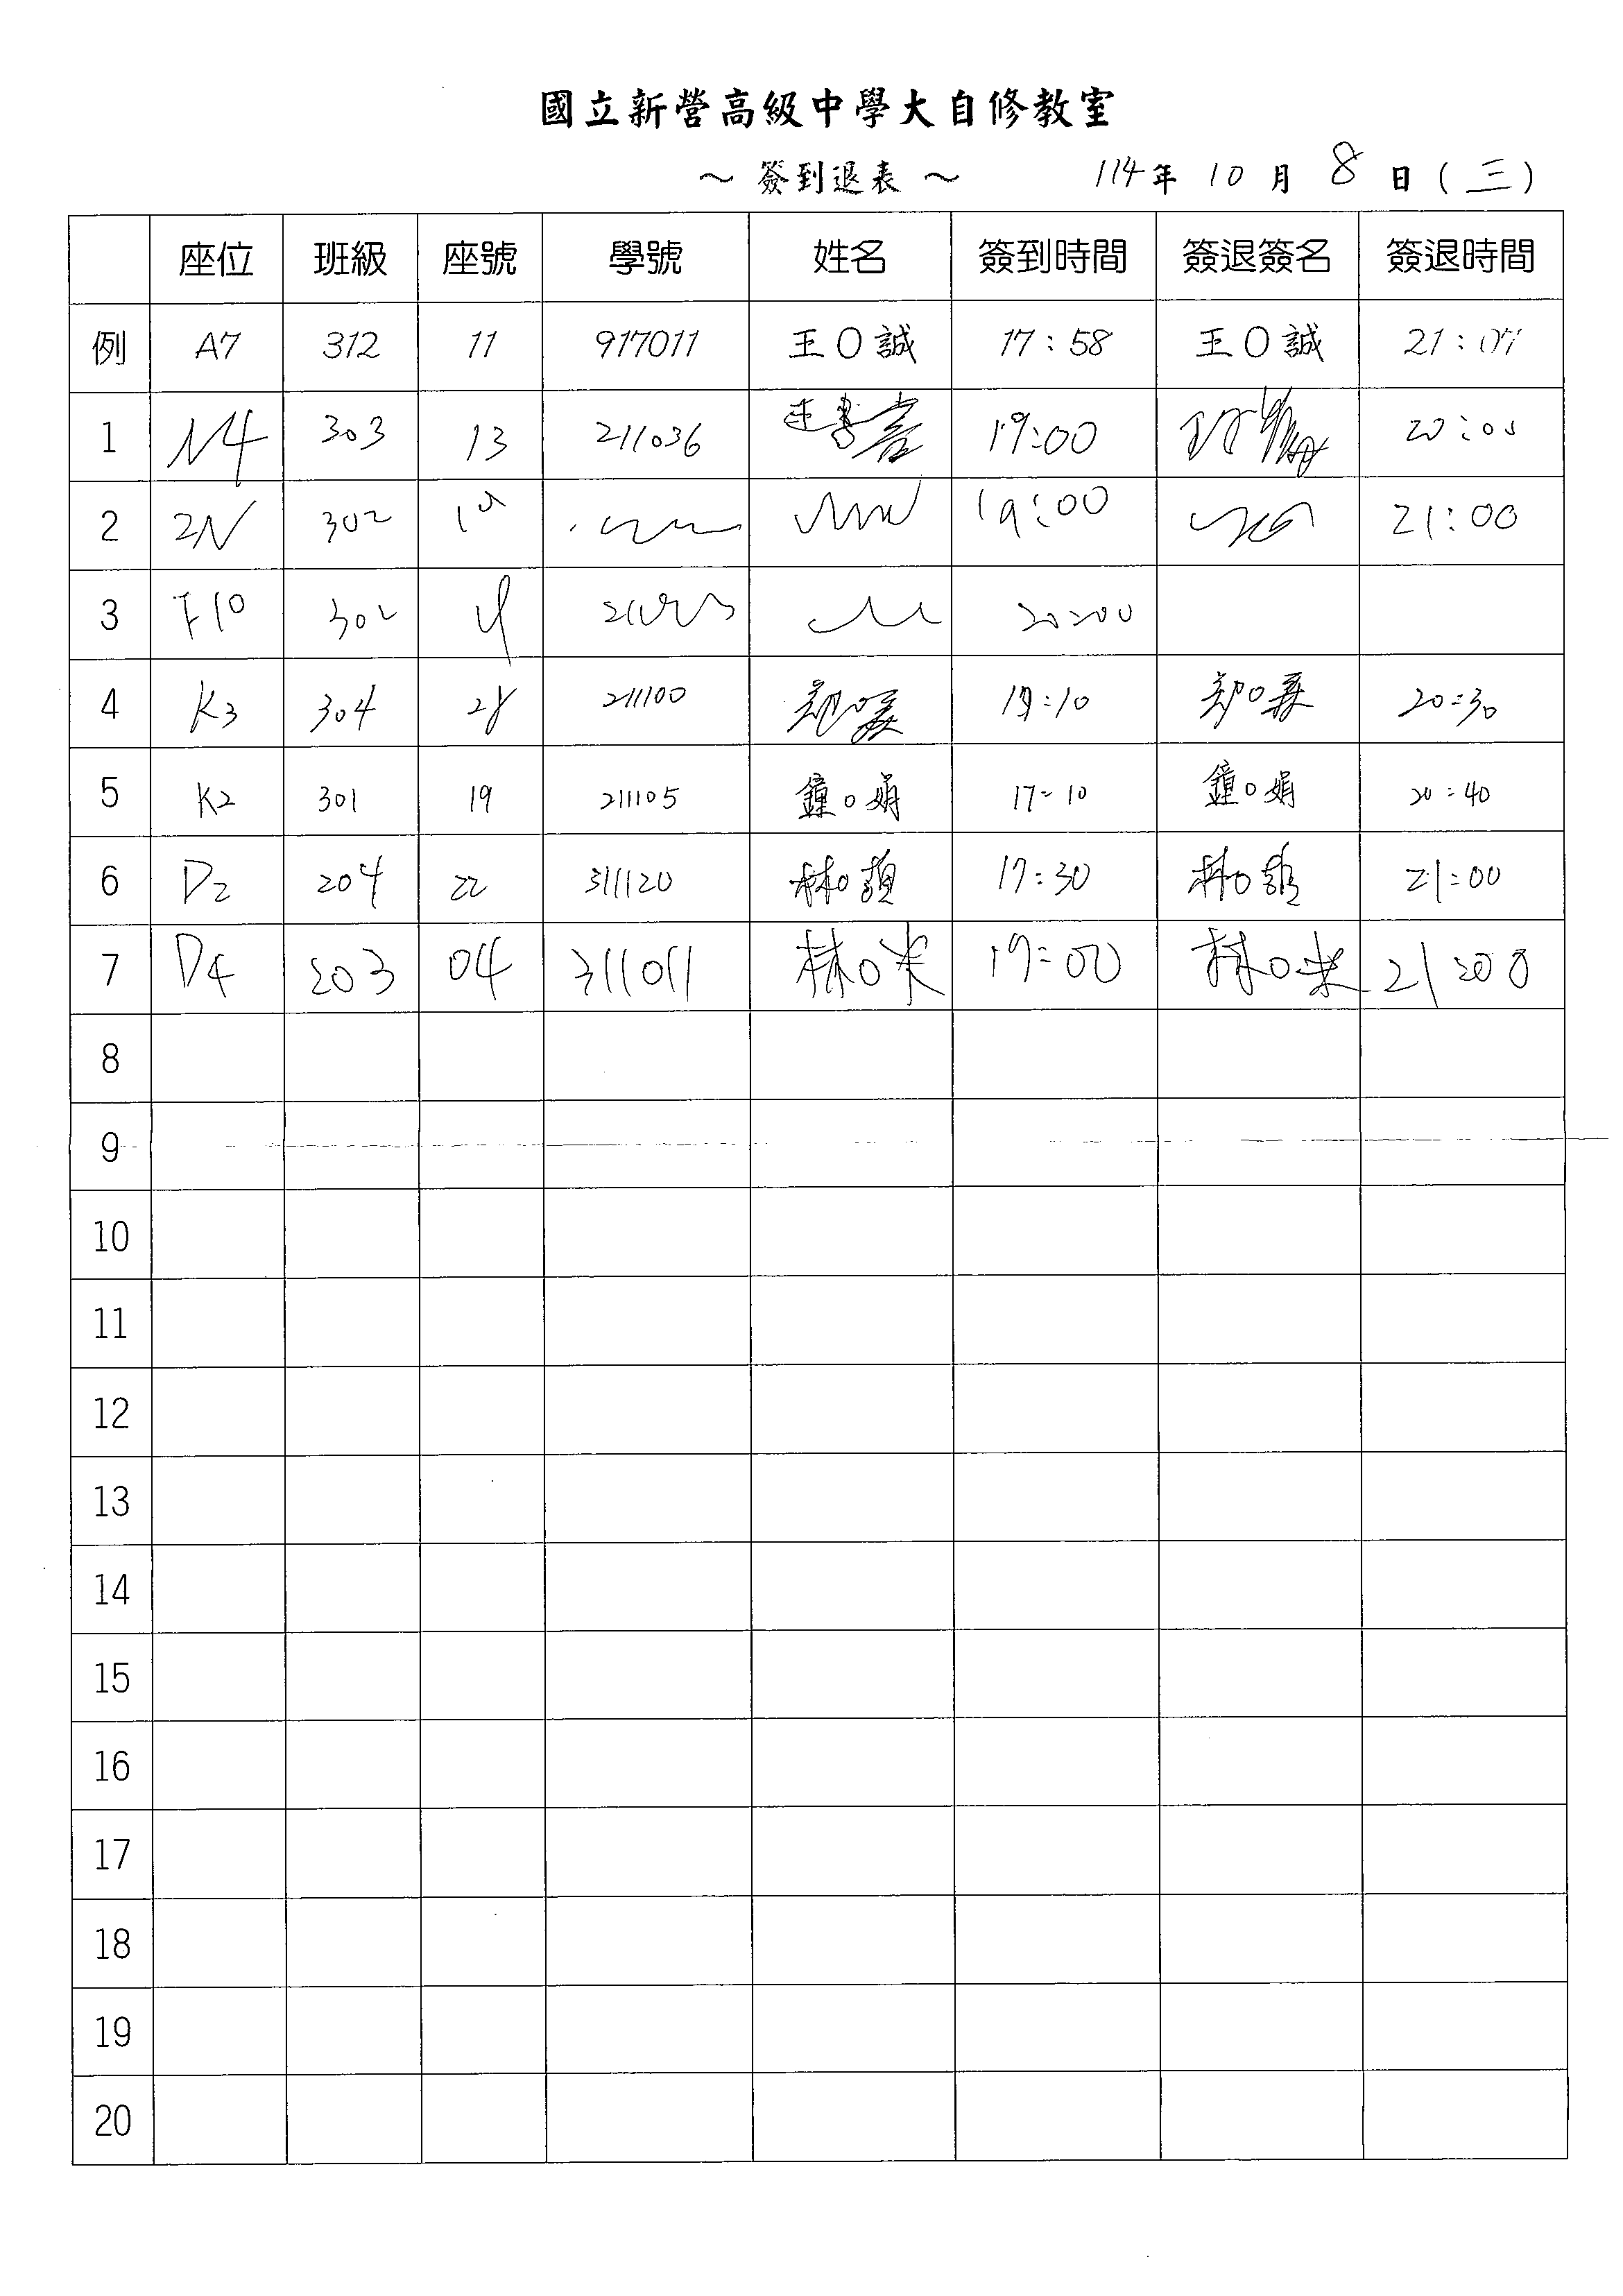 國立新營高級中學大自修教室
～ 簽到退表 ～ 114年 10 月 8 日 (三)
座位 班級 座號 學號 姓名 簽到時間 簽退簽名 簽退時間
例 A7 312 11 917011 王〇誠 17:58 王〇誠 21:07
1 N4 303 13 211036 19:00 20:00
2 2N 302 19:00 21:00
3 F10 302 20:00
4 K3 304 28 211100 20:30
5 K2 301 19 211105 鐘〇娟 17:10 鐘〇娟 20:40
6 D2 204 22 311120 林〇 17:30 林〇 21:00
7 D4 203 04 311011 林〇米 19:00 林〇米 21:00
8
9
10
11
12
13
14
15
16
17
18
19
20